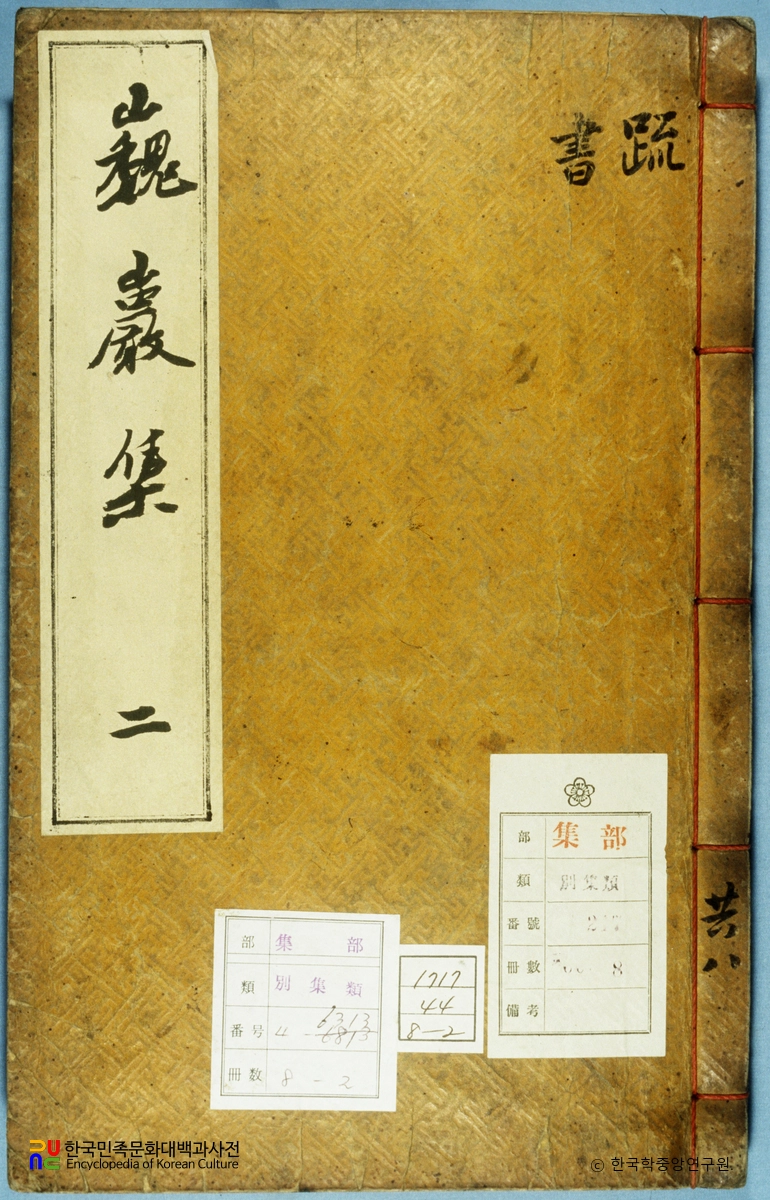 巍巖集 二
疏
書
共八
部 集部
類 別集類
番號
冊數 8
備考
部 集部
類 別集類
番号 4 - 6313
6813
冊数 8 - 2
1717
44
8-2
한국민족문화대백과사전
Encyclopedia of Korean Culture
© 한국학중앙연구원